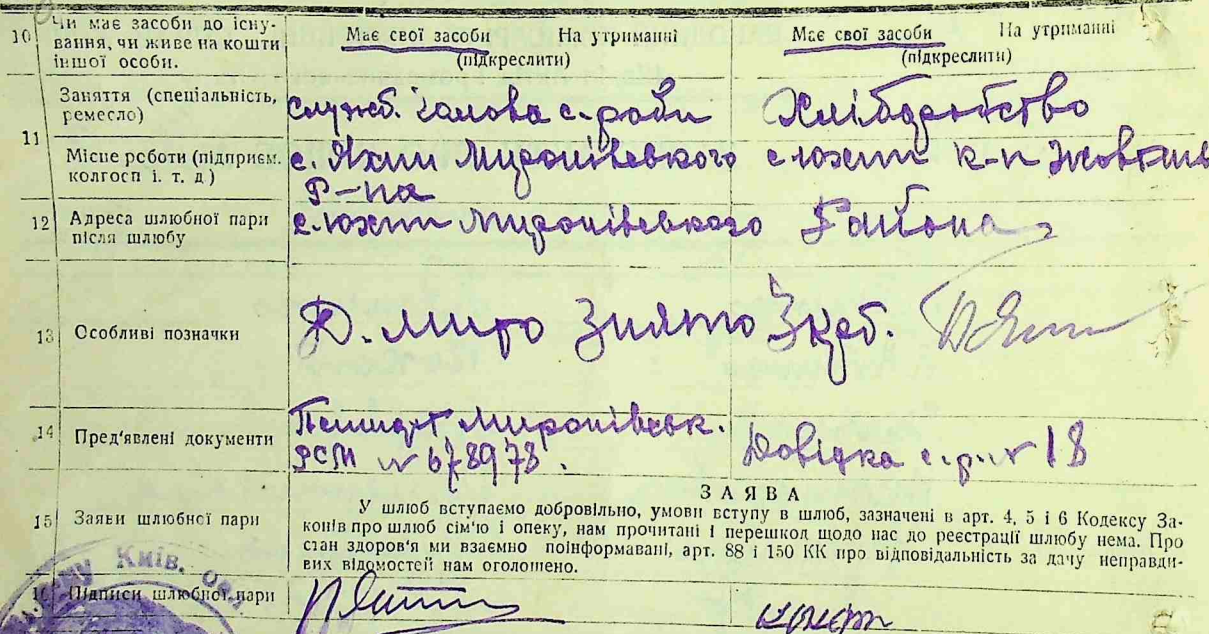 10 Чи має засоби до існування, чи живе на кошти іншої особи. Має свої засоби На утриманні (підкреслити) Має свої засоби На утриманні (підкреслити)
11 Заняття (спеціальність, ремесло) служб. голова с. ради Хліборобство
Місце роботи (підприєм. колгосп і. т. д) с. Яхни Миронівського Р-на с К-п Жовтень
12 Адреса шлюбної пари після шлюбу с. Миронівського Района
13 Особливі позначки
14 Пред'явлені документи Миронівськ. РСМ № 678978. Довідка с.р. № 18
ЗАЯВА
15 Заяви шлюбної пари У шлюб вступаємо добровільно, умови вступу в шлюб, зазначені в арт. 4, 5 і 6 Кодексу За-
конів про шлюб сім'ю і опеку, нам прочитані і перешкод щодо нас до реєстрації шлюбу нема. Про
стан здоров'я ми взаємно поінформавані, арт. 88 і 150 КК про відповідальність за дачу неправди-
вих відомостей нам оголошено.
16 Підписи шлюбної пари
Київ.